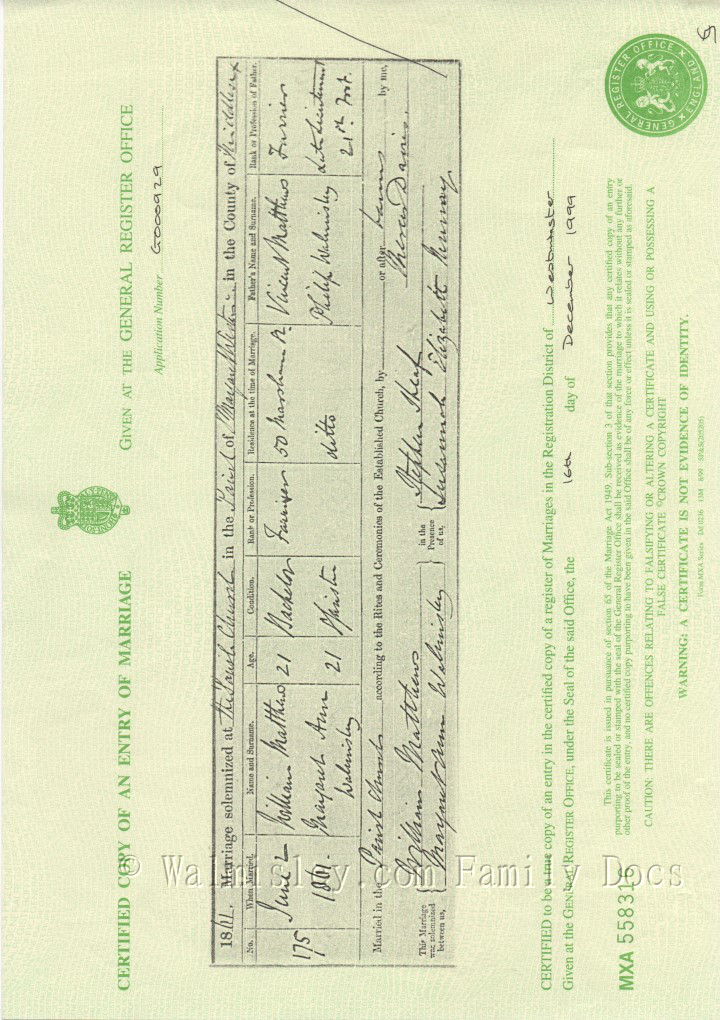 CERTIFIED COPY OF AN ENTRY OF MARRIAGE
GIVEN AT THE GENERAL REGISTER OFFICE
Application Number G000929
1861. Marriage solemnized at the Parish Church in the Parish of in the County of Middlesex
No. When Married. Name and Surname. Age. Condition. Rank or Profession. Residence at the time of Marriage. Father's Name and Surname. Rank or Profession of Father.
175 June 2 William Matthews 21 Bachelor 50 Marsham St Vincent Matthews Furrier
1861. Margaret Ann Walmisley 21 Spinster ditto Philip Walmisley late Lieutenant 21st Foot.
Married in the Parish Church according to the Rites and Ceremonies of the Established Church, by or after Banns by me,
This Marriage was solemnized between us, William Matthews in the Presence of us, Stephen Thomas Davies.
Margaret Ann Walmisley Susannah Elizabeth
CERTIFIED to be a true copy of an entry in the certified copy of a register of Marriages in the Registration District of Westminster
Given at the GENERAL REGISTER OFFICE, under the Seal of the said Office, the 16th day of December 1999
This certificate is issued in pursuance of section 65 of the Marriage Act 1949. Sub-section 3 of that section provides that any certified copy of an entry
purporting to be sealed or stamped with the seal of the General Register Office shall be received as evidence of the marriage to which it relates without any further or
other proof of the entry, and no certified copy purporting to have been given in the said Office shall be of any force or effect unless it is sealed or stamped as aforesaid.
CAUTION: THERE ARE OFFENCES RELATING TO FALSIFYING OR ALTERING A CERTIFICATE AND USING OR POSSESSING A
FALSE CERTIFICATE ©CROWN COPYRIGHT
WARNING: A CERTIFICATE IS NOT EVIDENCE OF IDENTITY.
MXA 558316
GENERAL REGISTER OFFICE ENGLAND
© Walmisley.com Family Docs